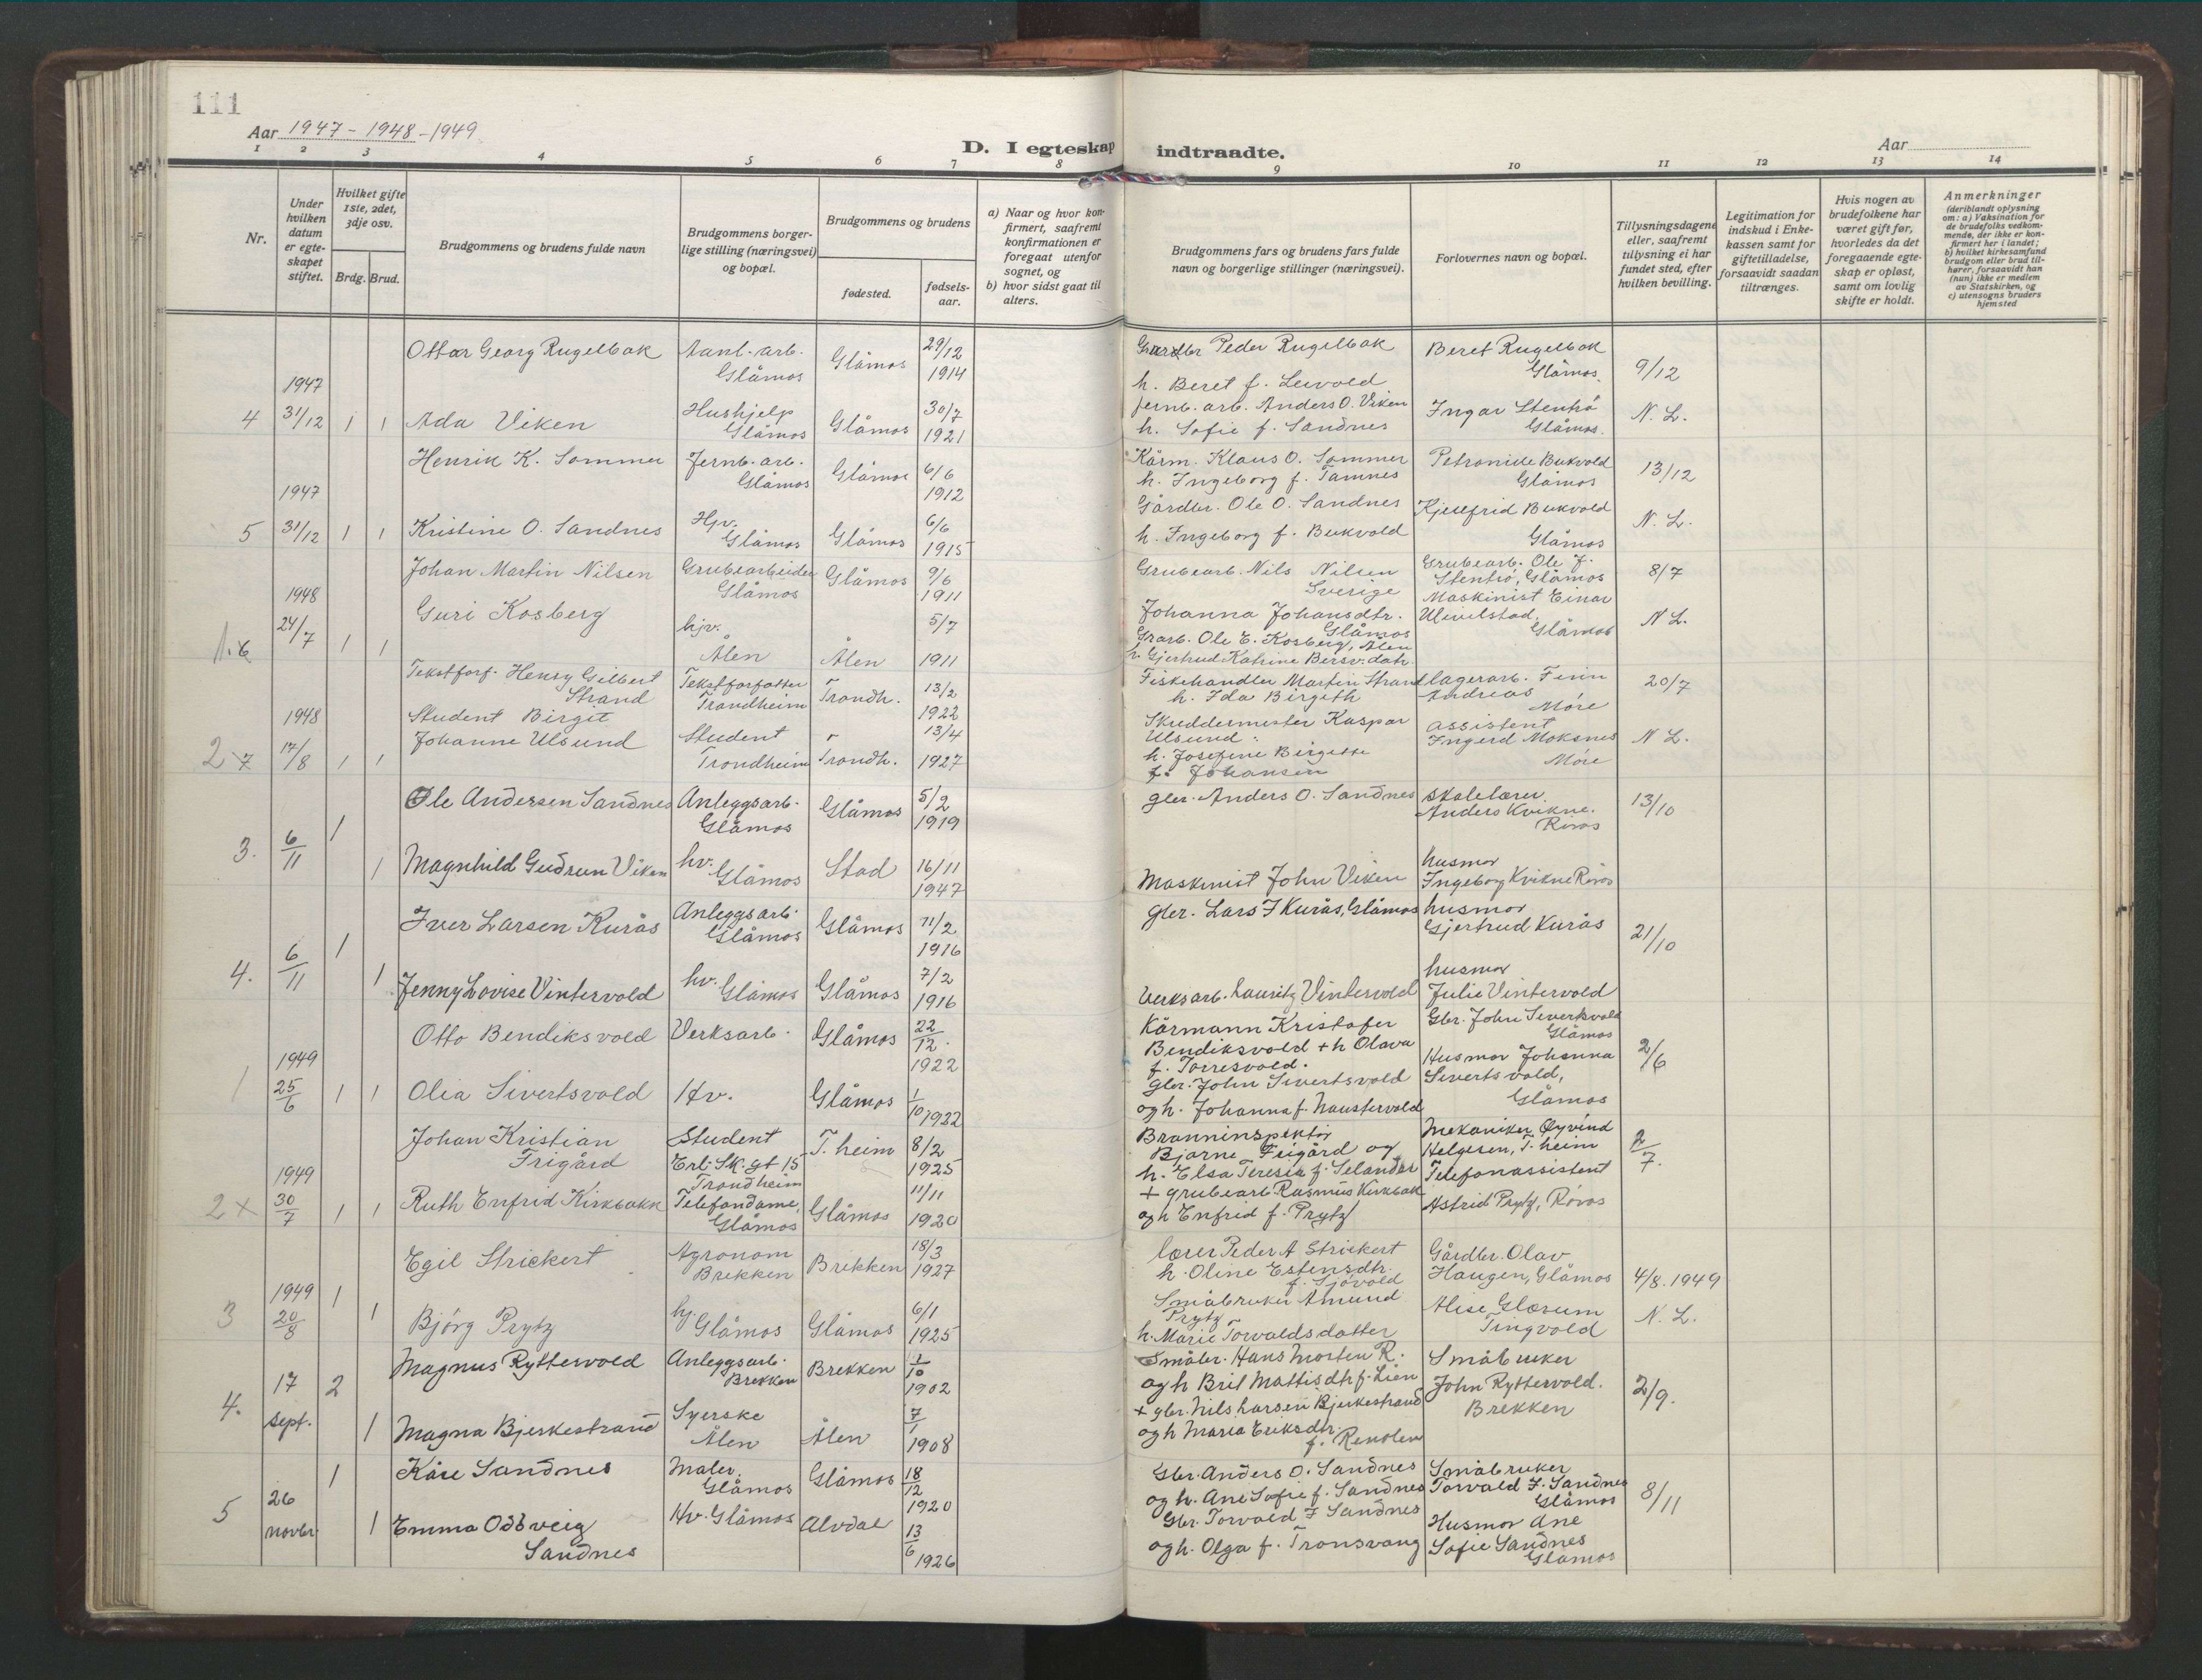 111
Aar 1947 - 1948 - 1949
D. I egteskap indtraadte.
Aar
1 2 3 4 5 6 7 8 9 10 11 12 13 14
Nr.
Under hvilken datum er egteskapet stiftet.
Hvilket gifte 1ste, 2det, 3dje osv.
Brdg. Brud.
Brudgommens og brudens fulde navn
Brudgommens borgerlige stilling (næringsvei) og bopæl.
Brudgommens og brudens
fødested.
fødselsaar.
a) Naar og hvor konfirmert, saafremt konfirmationen er foregaat utenfor sognet, og
b) hvor sidst gaat til alters.
Brudgommens fars og brudens fars fulde navn og borgerlige stillinger (næringsvei).
Forlovernes navn og bopæl.
Tillysningsdagene eller, saafremt tillysning ei har fundet sted, efter hvilken bevilling.
Legitimation for indskud i Enkekassen samt for giftetilladelse, forsaavidt saadan tiltrænges.
Hvis nogen av brudefolkene har været gift før, hvorledes da det foregaaende egteskap er opløst, samt om lovlig skifte er holdt.
Anmerkninger
(deriblandt oplysning om: a) Vaksination for de brudefolks vedkommende, der ikke er konfirmert her i landet;
b) hvilket kirkesamfund brudgom eller brud tilhører, forsaavidt han (hun) ikke er medlem av Statskirken, og
c) utensogns bruders hjemsted
Ottar Georg Rugelbak Aanl.-arb. Glåmos Glåmos 29/12 1914 Gardbr Peder Rugelbak h. Beret f. Beret Rugelbak Glåmos. 9/12
4 1947 31/12 1 1 Ada Viken Hushjelp Glåmos Glåmos 30/7 1921 Jernb. arb. Anders O. Viken h. Sofie f. Sandnes Ingar Stenhö Glåmos. N. L.
Henrik K. Sommer Jernb. arb. Glåmos Glåmos 6/6 1912 Kårm. Klaus O. Sommer h. Ingeborg f. Tamnes Petronille Bukvold Glåmos 13/12
5 1947 31/12 1 1 Kristine O. Sandnes Hjv. Glåmos Glåmos 6/6 1915 Gårdbr. Ole O. Sandnes h. Ingeborg f. Bukvold Kjellfrid Bukvold Glåmos N. L.
Johan Martin Nilsen Grubearbeider Glåmos Glåmos 9/6 1911 Grubearb. Nils Nilsen Sverige Johanna Johansdtr. Glåmos Grubearb. Ole J. Stenhö, Glåmos 8/7
1.6 1948 24/7 1 1 Guri Kosberg hjv. Ålen Ålen 5/7 1911 Grarb. Ole E. Kosberg, Ålen h. Gjertrud Katrine Bersv.datr. Maskinist Einar Ulvilstad, Glåmos N. L.
Tekstforf. Henry Gilbert Strand Tekstforfatter Trondheim Trondh. 13/2 1922 Fiskehandler Martin Strand h. Ida Birgeth lagerarb. Finn Andreas Möre 20/7
2 x 7 1948 17/8 1 1 Student Birgit Johanne Ulsund Student Trondheim Trondh. 13/4 1927 Skreddermester Kaspar Ulsund h. Josefine Birgitte f. Johansen assistent Ingerd Moksnes Möre N L.
Ole Andersen Sandnes Anleggsarb. Glåmos Glåmos 5/2 1919 gbr. Anders O. Sandnes skolelærer Anders Kvikne. Röros 13/10
3. 6/11 1 1 Magnhild Gudrun Viken hv. Glåmos Stod 16/11 1947 Maskinist John Viken husmor Ingeborg Kvikne Röros
Iver Larsen Kurås Anleggsarb. Glåmos Glåmos 11/2 1916 gbr. Lars I Kurås, Glåmos husmor Gjertrud Kurås 21/10
4. 6/11 1 1 Jenny Lovise Vintervold hv. Glåmos Glåmos 7/2 1916 Verksarb. Lauritz Vintervold husmor Julie Vintervold
Otto Bendiksvold Verksarb. Glåmos 22/12 1922 Kårmann Kristofer Bendiksvold + h Olava f. Torresvold. Gbr. John Sivertsvold Glåmos 2/6
1 1949 25/6 1 1 Olia Sivertsvold Hv. Glåmos 1/10 1922 gbr. John Sivertsvold og h. Johanna f. Haustervold Husmor Johanna Sivertsvold, Glåmos
Johan Kristian Frigård Student Erl. Sk. gt 15 Trondheim T. heim 8/2 1925 Branninspektör Bjarne Frigård og h. Elsa Teresia f. Selander Mekaniker Öyvind Helgesen, T. heim 2/7.
2 x 1949 30/7 1 1 Ruth Enfrid Kirkbakk Telefondame, Glåmos Glåmos 11/11 1920 + grubearb Rasmus Kirkbak og h Enfrid f. Prytz Telefonassistent Astrid Prytz, Röros
Egil Strickert Agronom Brekken Brekken 18/3 1927 lærer Peder A Strickert h. Oline Estensdtr. f. Sjövold Gårdbr. Olav Haugen, Glåmos 4/8. 1949
3 1949 20/8 1 1 Björg Prytz hj. Glåmos Glåmos 6/1 1925 Småbruker Amund Prytz h. Marie Torvaldsdatter Alise Glærum Tingvold N. L.
Magnus Ryttervold Anleggsarb. Brekken Brekken 1/10 1902 Småbr. Hans Morten R. og h Brit Mattisdtr f. Lien Småbruker John Ryttervold. Brekken 2/9.
4. 17 sept. 2 1 Magna Bjerkestrand Syerske Ålen Ålen 7/1 1908 + gbr. Nils Larsen Bjerkestrand og h Maria Eriksdtr. f. Renolen
Kåre Sandnes Maler. Glåmos Glåmos 18/12 1920 Gbr. Anders O. Sandnes og h. Ane Sofie f. Sandnes Småbruker Torvald J. Sandnes Glåmos 8/11
5 26 novbr 1 1 Emma Oddveig Sandnes Hv. Glåmos Alvdal 13/6 1926 Gbr. Torvald J Sandnes og h. Olga f. Tronsvang Husmor Ane Sofie Sandnes Glåmos